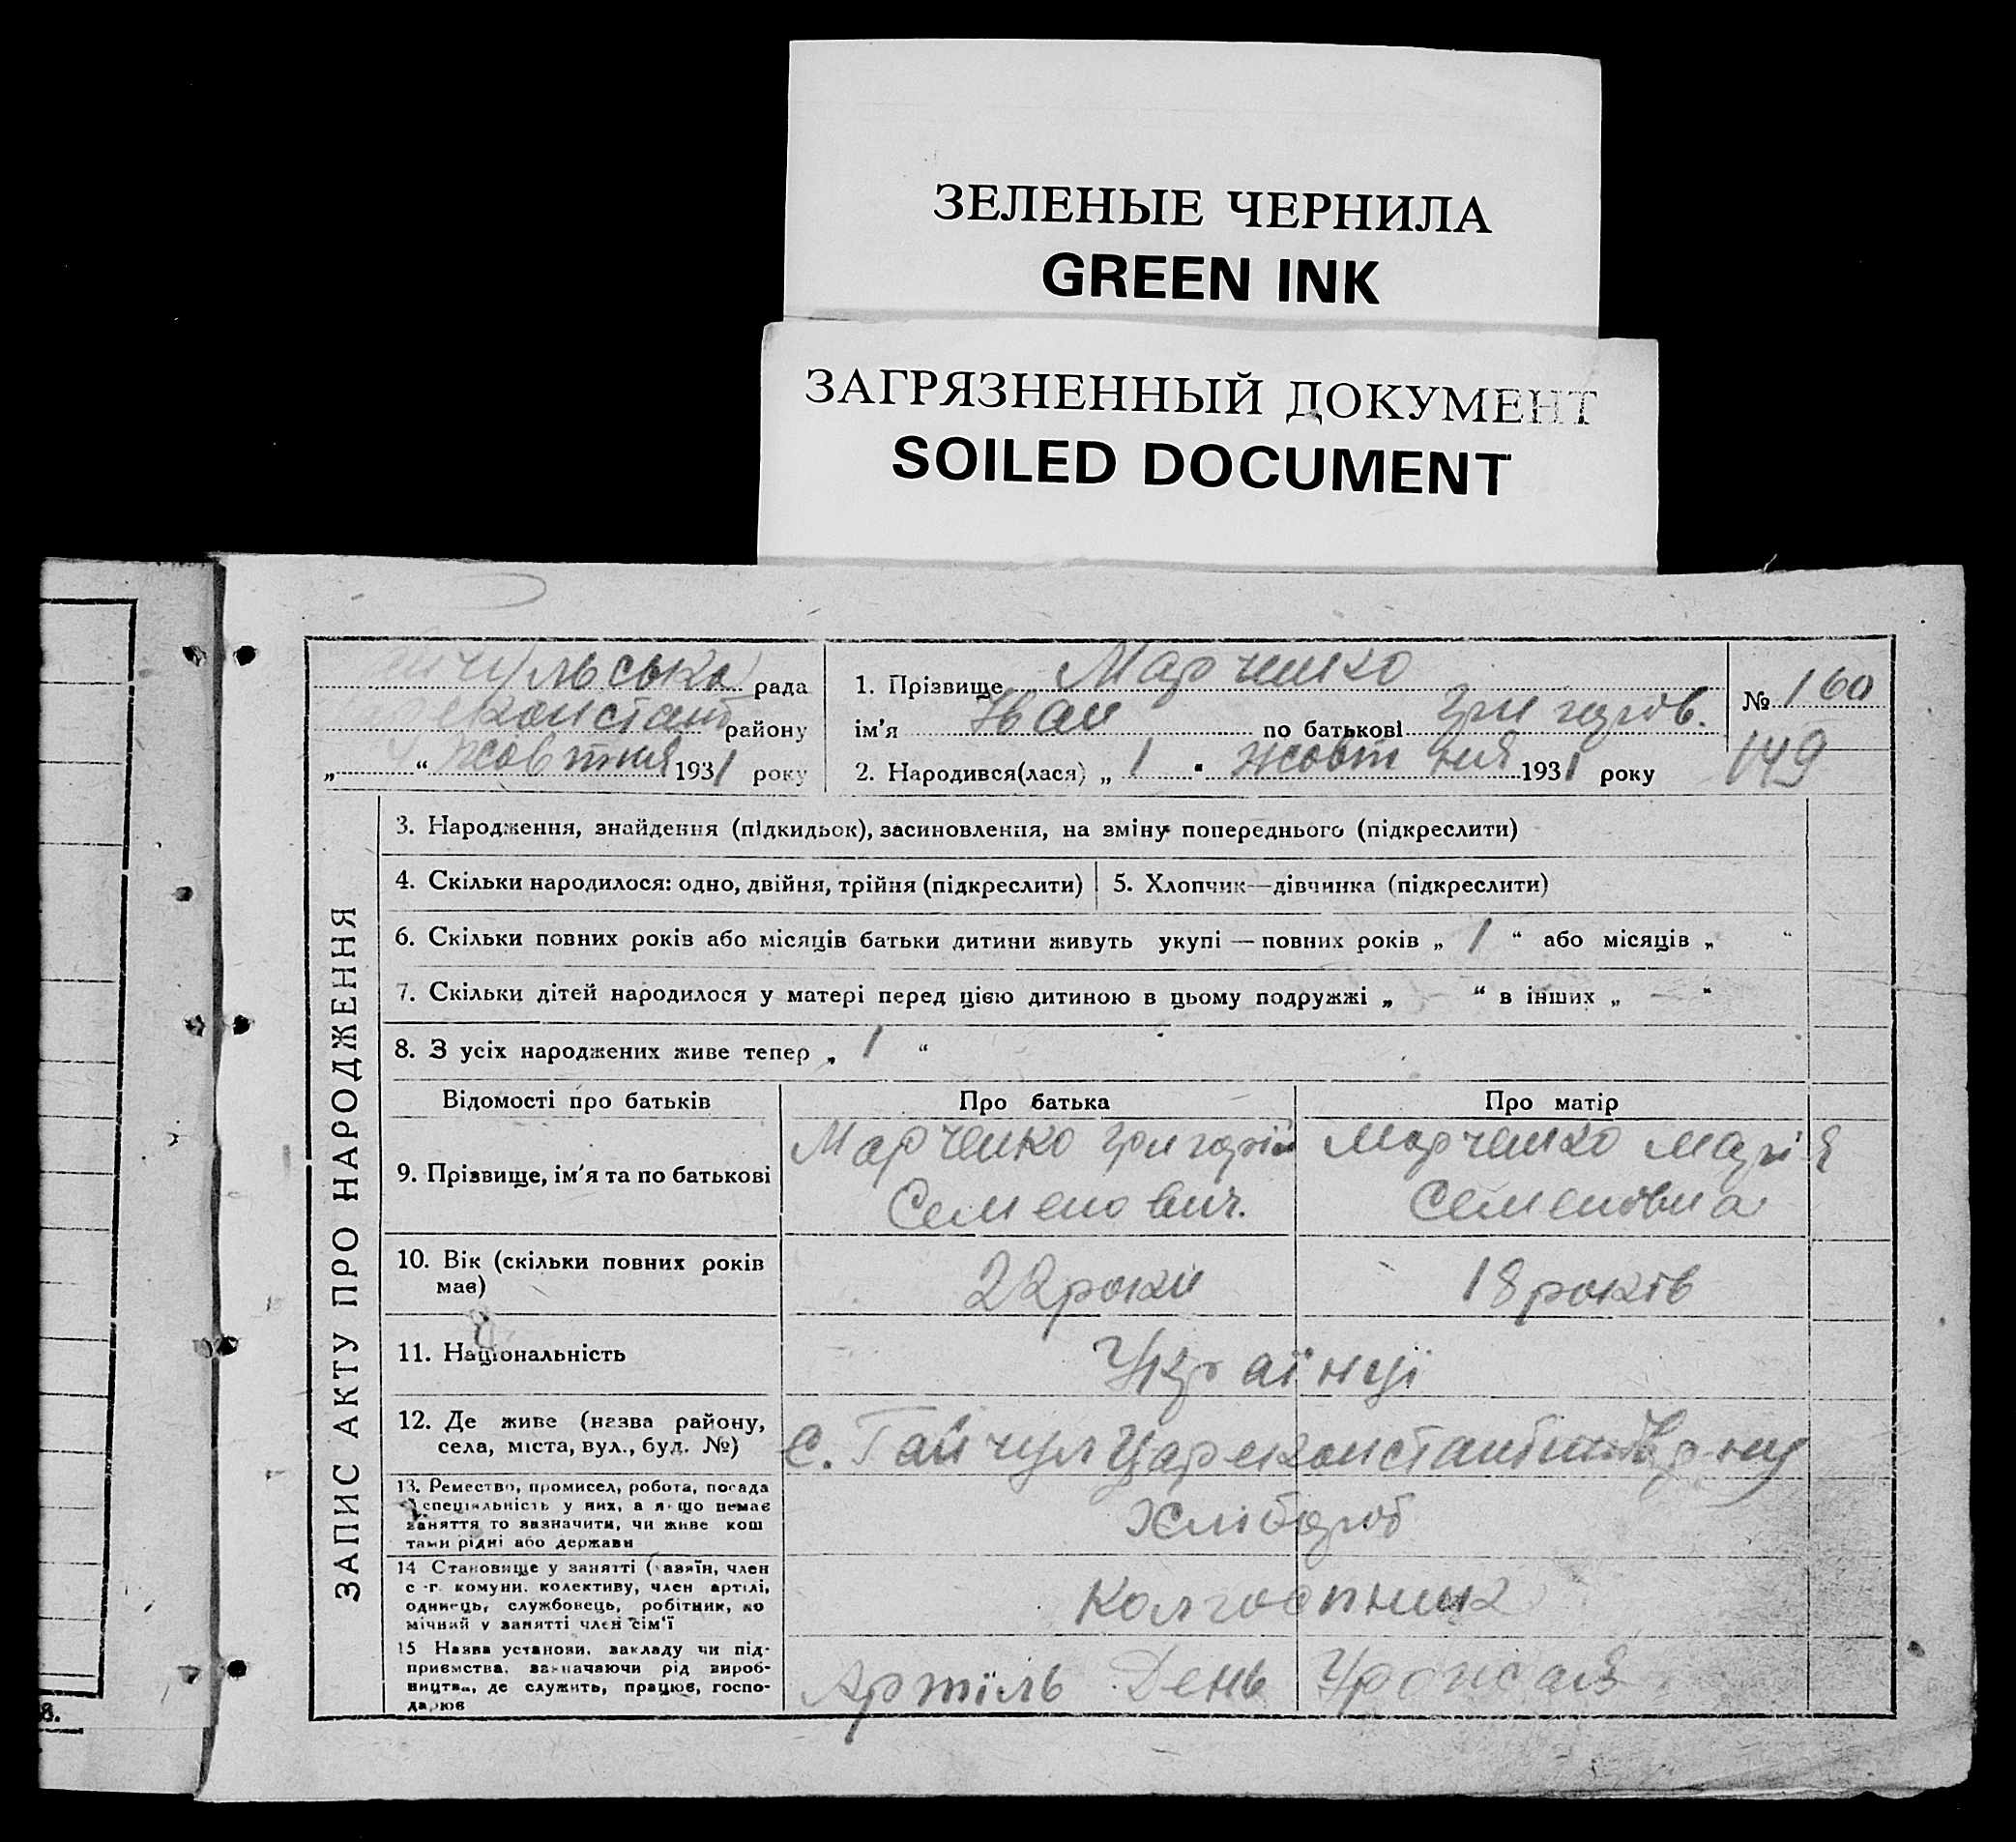 ЗЕЛЕНЫЕ ЧЕРНИЛА
GREEN INK
ЗАГРЯЗНЕННЫЙ ДОКУМЕНТ
SOILED DOCUMENT
чульська рада
константˮ району
„ “ жовтня 1931 року
1. Прізвище Марченко
ім'я Іван по батькові Григоров.
2. Народився(лася) „ 1 “ жовтня 1931 року
№ 160
149
ЗАПИС АКТУ ПРО НАРОДЖЕННЯ
3. Народження, знайдення (підкидьок), засиновлення, на зміну попереднього (підкреслити)
4. Скільки народилося: одно, двійня, трійня (підкреслити)
5. Хлопчик—дівчинка (підкреслити)
6. Скільки повних років або місяців батьки дитини живуть укупі — повних років „ 1 “ або місяців „ “
7. Скільки дітей народилося у матері перед цією дитиною в цьому подружжі „ “ в інших „ — “
8. З усіх народжених живе тепер „ 1 “
Відомості про батьків
Про батька
Про матір
9. Прізвище, ім'я та по батькові
Марченко Григорій
Семенович.
Марченко Марія
Семеновна
10. Вік (скільки повних років
має)
22 роки
18 років
11. Національність
Українці
12. Де живе (назва району,
села, міста, вул., буд. №)
С. Гайчул Царе р-ну
13. Ремество, промисел, робота, посада
спеціяльність у них, а якщо немає
заняття то зазначити, чи живе кош
тами рідні або держави
Хлібороб
14 Становище у занятті (хазяїн, член
с -г. комуни. колективу, член артілі,
одинець, службовець, робітник, по
мічний у занятті член сім'ї
Колгоспник
15 Назва установи, закладу чи під-
приємства, зазначаючи рід вироб-
ництва, де служить, працює, госпо-
дарює
Артїль День Урожая
8.